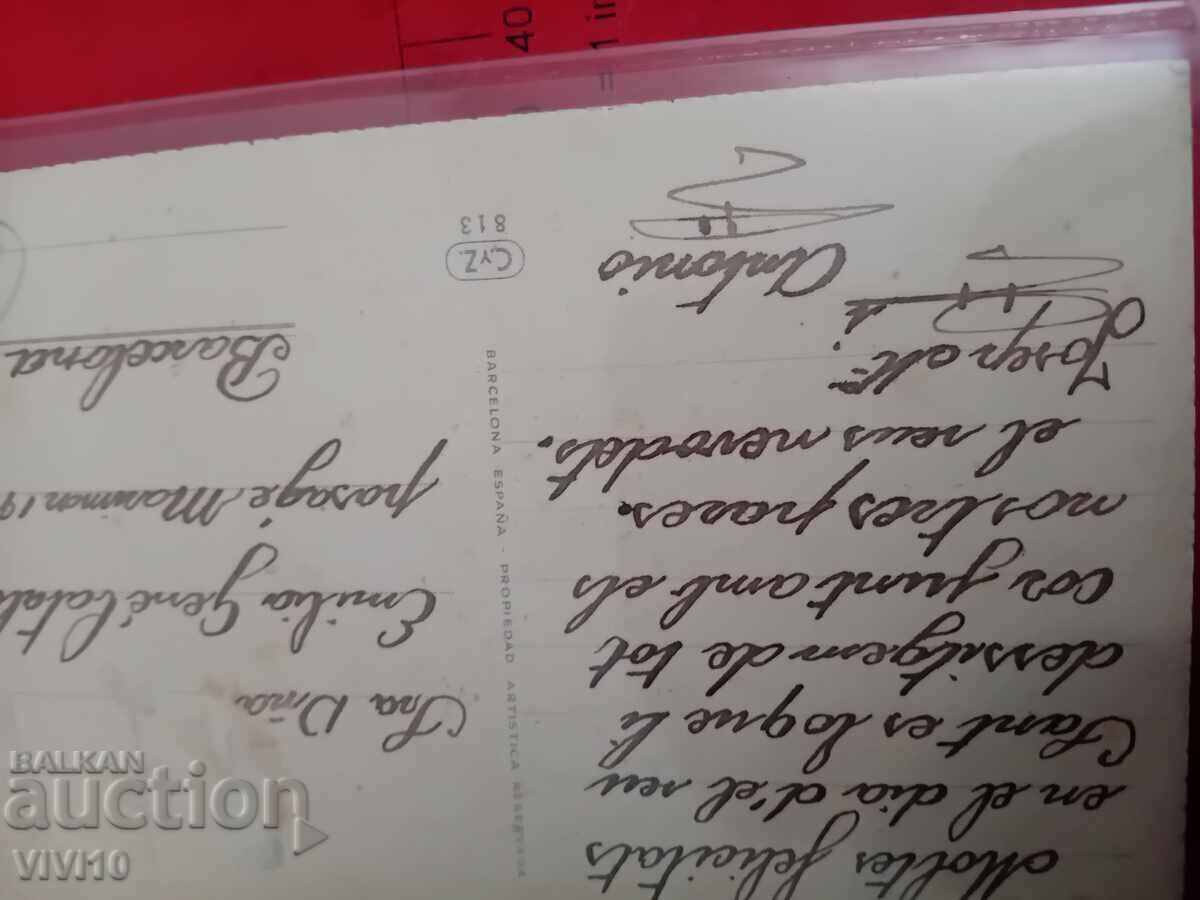 Moltes felicitats
en el dia d'el seu
Sant es loque li
dessitgem de tot
cor junt amb els
nostres pares.
el seus nevodets.
Josep Mª. i
Antonio
C.YZ.
813
BARCELONA ESPAÑA - PROPIEDAD ARTISTICA RESERVADA
Sra Dña
Emilia Gené
pasage. Marimon 19
Barcelona
40
= 1 in
BALKAN
auction
VIVI10